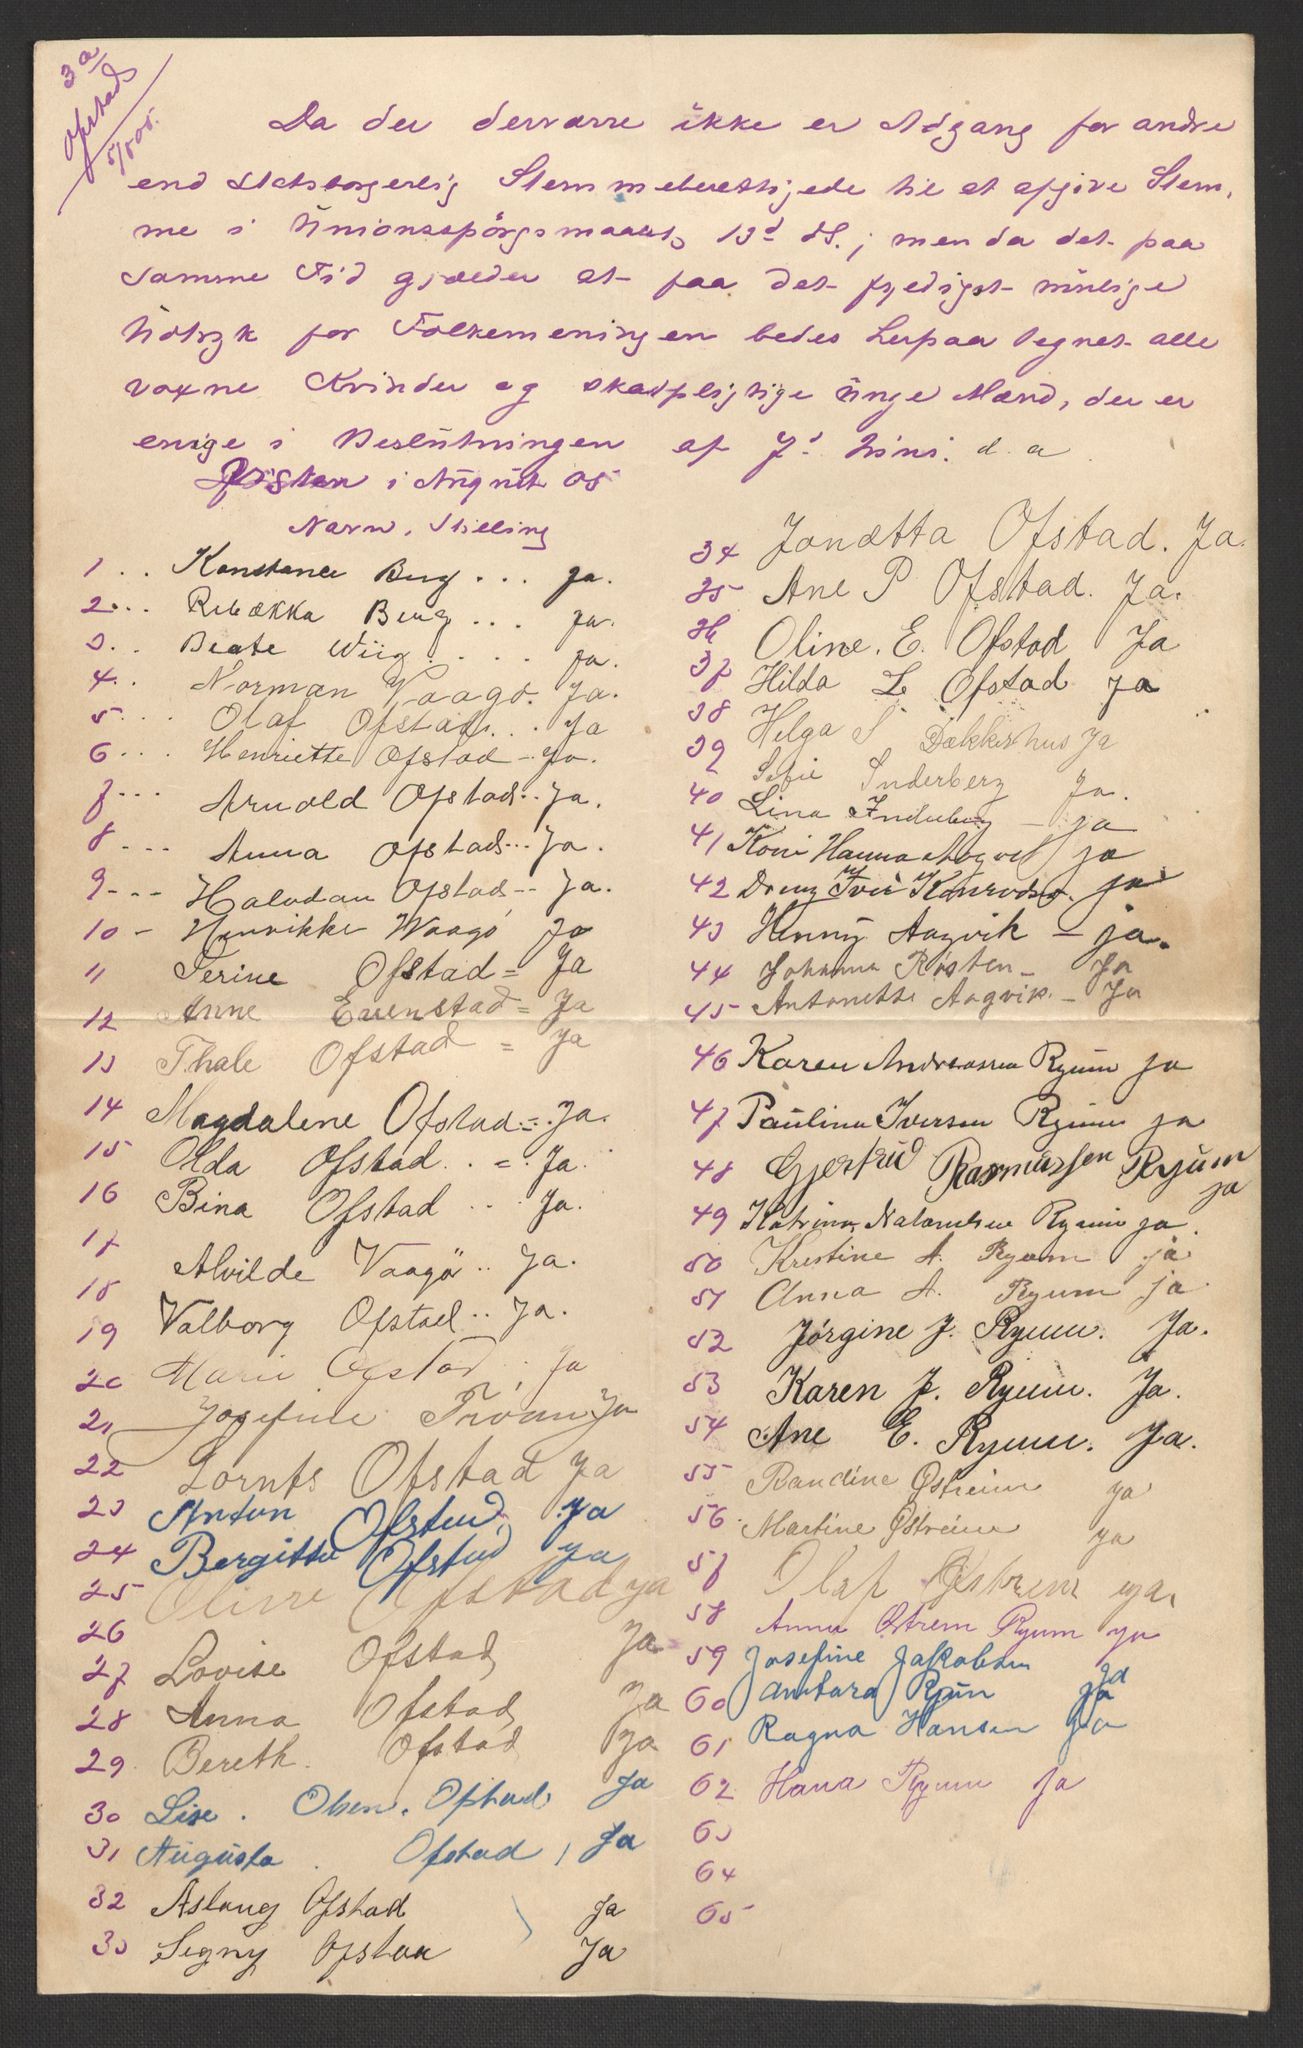 3 a
Ofstad
5/8 05.
Da der derværre ikke er Adgang for andre
end Statsborgerlig Stemmeberettigede til at afgive Stem,
me i Unionsspörgsmaalet 13d ds.; men da det paa
samme Tid gjælder at faa det fyldigst mulige
Udtryk for Folkemeningen bedes herpaa tegnet alle
voxne Kvinder og skatpligtige unge Mænd, der er
enige i Beslutningen af 7d Juni. d. a.
Røsten i August 05
Navn. Stilling
1 .. Konstance Berg ... Ja.
2 ... Rebækka Berg ... Ja.
3 .. Beate Wiig .... Ja.
4 .. Norman Vaagø. Ja.
5 ... Olaf Ofstad... Ja
6 ... Henriette Ofstad .. Ja.
7 ... Arnold Ofstad .. Ja.
8 ... Anna Ofstad ... Ja.
9 - - - Halvdan Ofstad -- Ja.
10 - Henrikke Waagø Ja
11 Serine Ofstad = Ja
12 Anne Evenstad = Ja
13 Thale Ofstad = Ja
14 Magdalene Ofstad =. Ja.
15 Olda Ofstad . =. Ja.
16 Bina Ofstad ... Ja.
17
18 Alvilde Vaagö .. Ja.
19 Valborg Ofstad .. Ja.
20 Marie Ofstad . Ja
21 Josefine Ja
22 Lornts Ofstad Ja
23 Anton Ofstad, Ja
24 Bergitte Ofstad Ja
25 Oline Ofstad Ja
26
27 Lovise Ofstad Ja
28 Anna Ofstad Ja
29 Bereth. Ofstad Ja
30 Lise. Olsen. Ofstad Ja
31 Augusta . Ofstad, Ja
32 Aslaug Ofstad Ja
33 Segny Ofstaa Ja
34 Jonætta Ofstad. Ja.
35 Ane P Ofstad. Ja.
36 Oline. E. Ofstad Ja
37 Hilda L Ofstad Ja
38 Helga S Dækkerhus Ja
39 Sofie Inderberg Ja.
40 Lina Inderberg - ja
41 Hanna Aagvik ja
42 Konradsen. ja
43 Henny Aagvik - ja.
44 Johanna Røsten - Ja
45 Antonette Aagvik - Ja
46 Karen Andreassen Ryum ja
47 Paulina Iversen Ryum ja
48 Gjertrud Rasmussen Ryum
ja
49 Katrina Ryum ja.
50 Kristine A. Ryum ja
51 Anna A. Ryum ja
52 Jørgine J. Ryum. Ja.
53 Karen J. Ryum. Ja.
54 Ane E. Ryum. Ja.
55 Randine Østreim ja
56 Martine Østreim ja
57 Olaf Østrem ja.
58 Anna Østrem Ryum ja
59 Josefine Jakobsen Ja
60 Ryum ja
61 Ragna Hansen Ja
62 Hana Ryum ja
63
64
65